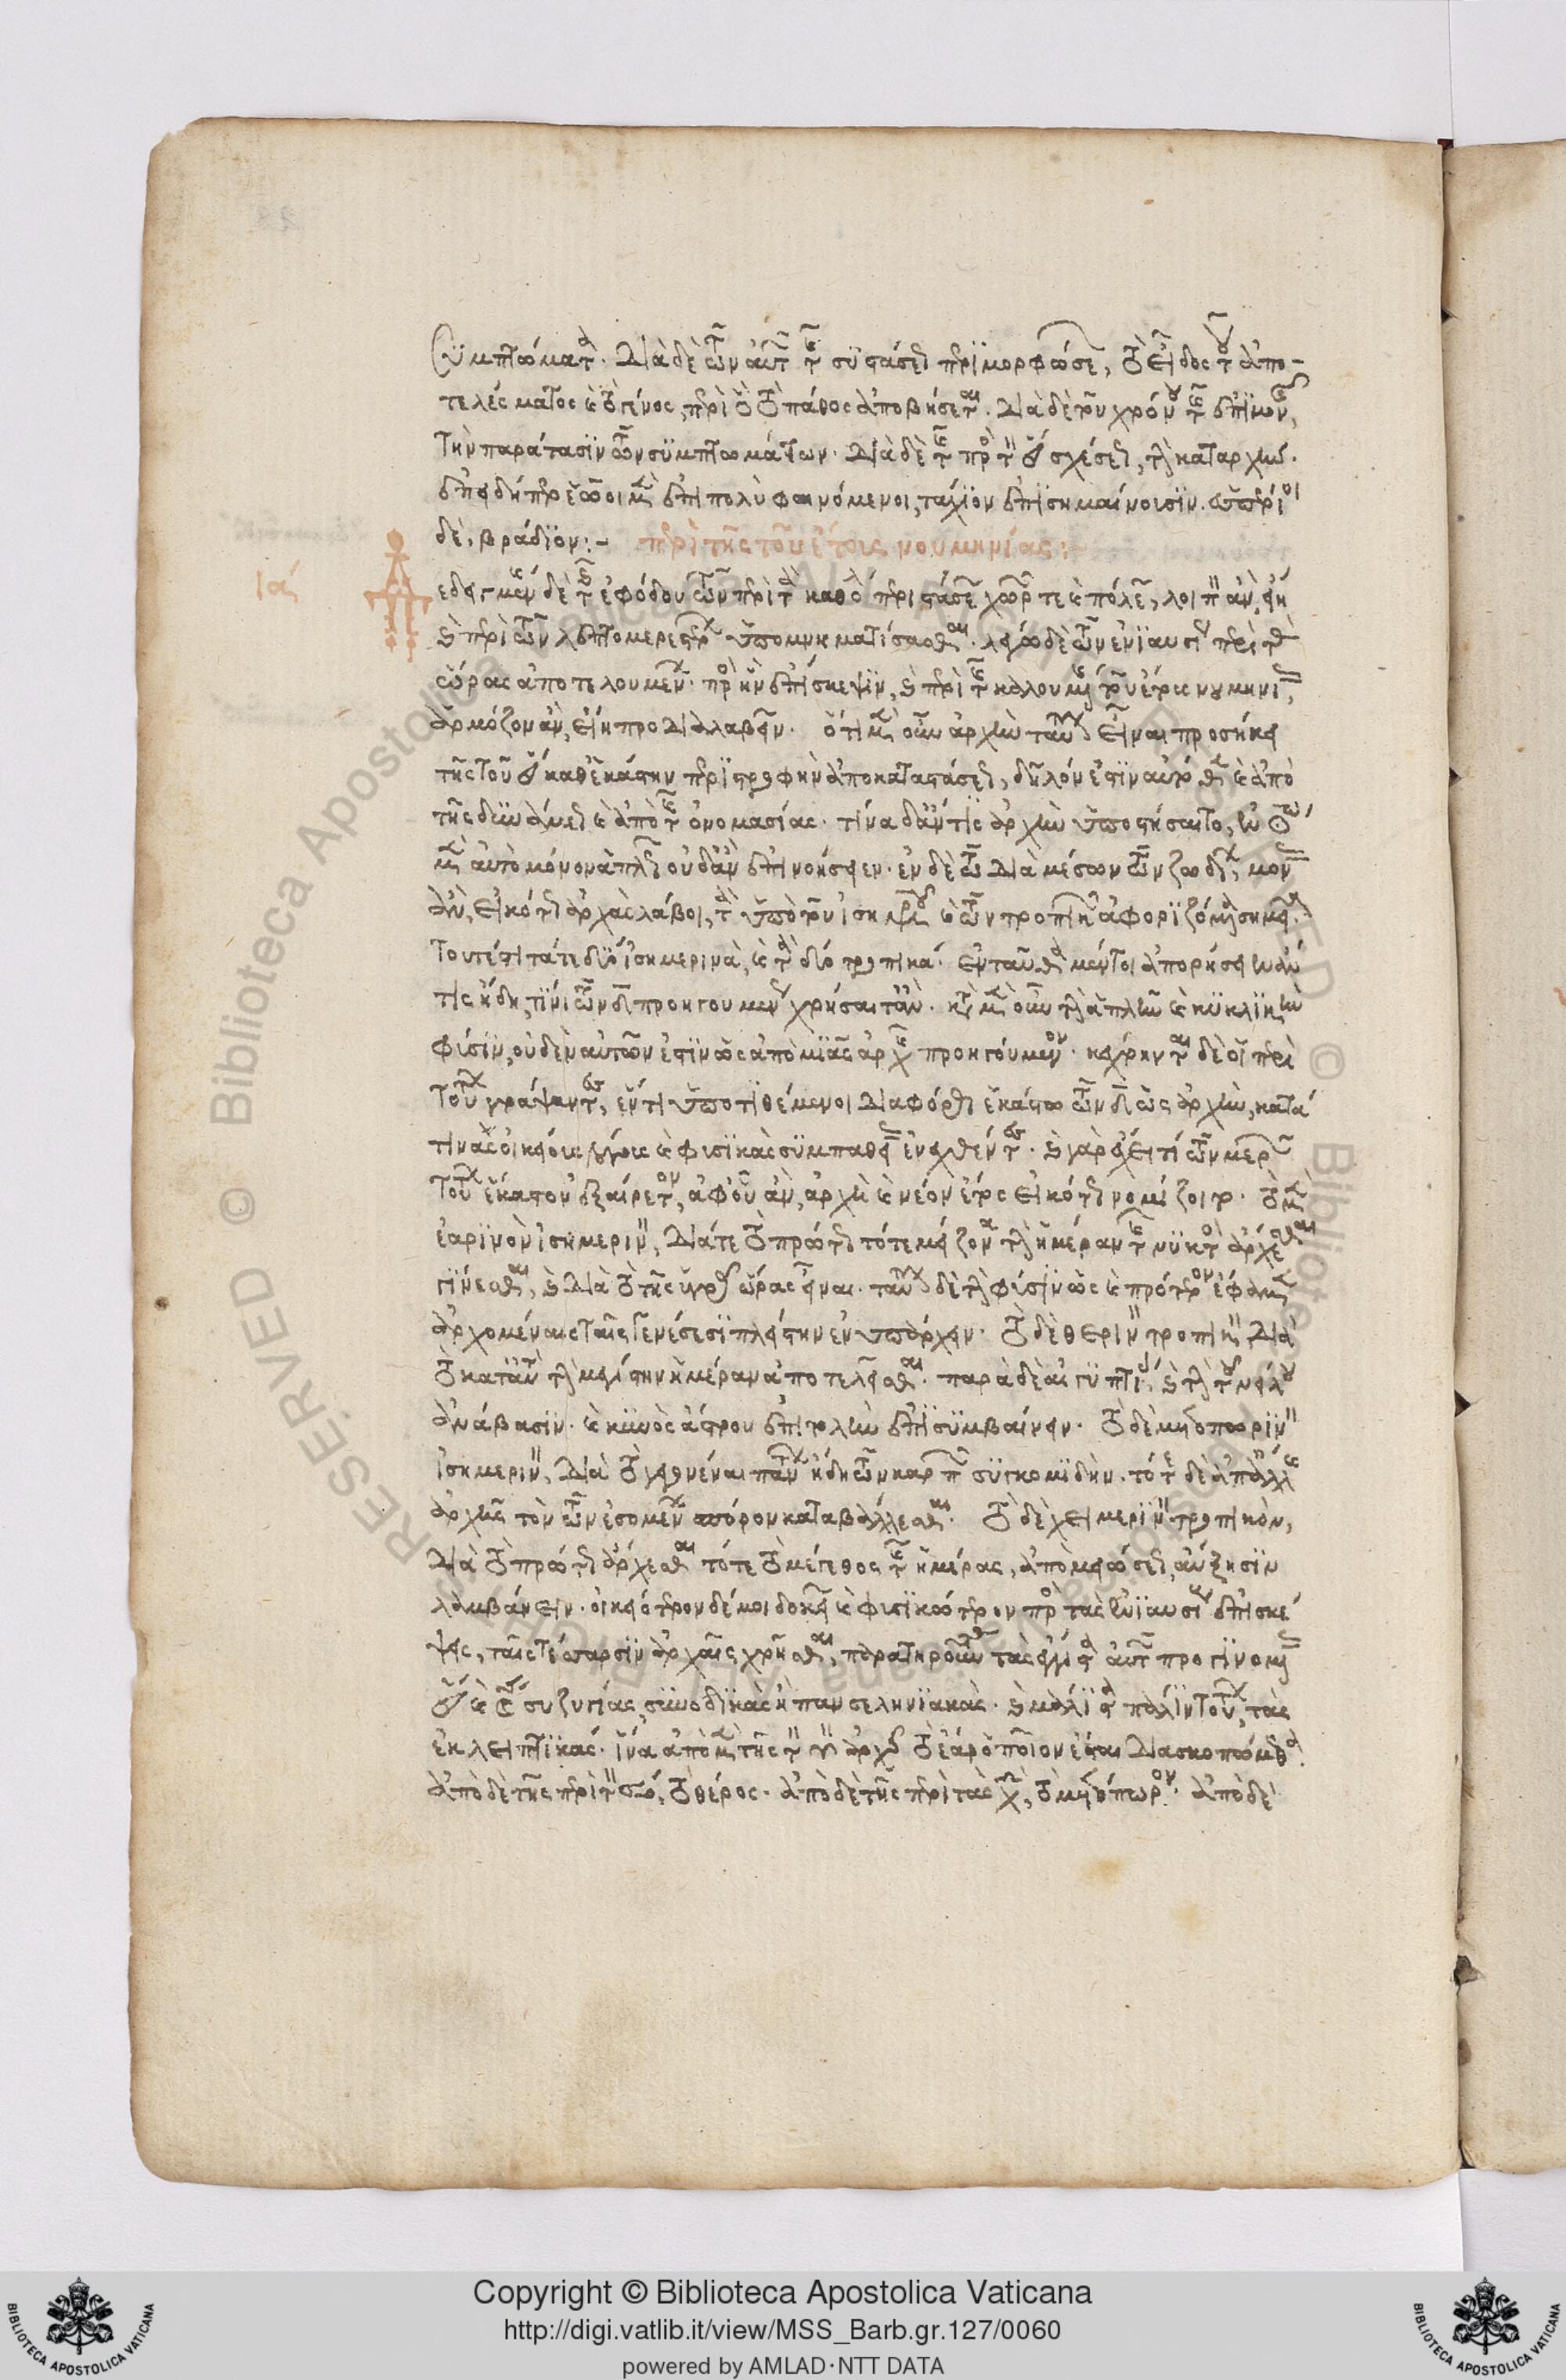 συμπτώματα. διὰ δὲ τῶν αὐτῶν τῆς συστάσεως περὶ μορφώσεις, τὸ εἶδος τοῦ ἀπο-
τελέσματος καὶ τὸ γένος, περὶ ὃ τὸ πάθος ἀποβήσεται. διὰ δὲ τοῦ χρόνου τῆς ἐπιμονῆς,
τὴν παράτασιν τῶν συμπτωμάτων. διὰ δὲ τῆς πρὸς τὸν ☉ σχέσεως, τὴν καταρχήν.
ἐπειδήπερ ἑῷοι μὲν ἐπὶ πολὺ φαινόμενοι, τάχιον ἐπισημαίνουσιν. ἑσπέριοι
δὲ, βράδιον:-   περὶ τῆς τοῦ ἔτους νουμηνίας:-
ια
εδειγμένης δὲ τῆς ἐφόδου τῶν περὶ τὰς καθόλου περιστάσεις χωρῶν τε καὶ πόλεων, λοιπὸν ἂν εἴη
καὶ περὶ τῶν λεπτομερεστέρων ὑπομνηματίσασθαι. λέγω δὲ τῶν ἐνιαυσίως περὶ τὰς
ὥρας ἀποτελουμένων. πρὸς ἣν ἐπίσκεψιν, καὶ περὶ τῆς καλουμένης τοῦ ἔτους νουμηνίας,
ἁρμόζον ἂν, εἴη προδιαλαβεῖν. ὅτι μὲν οὖν ἀρχὴν ταύτην εἶναι προσήκει
τῆς τοῦ ☉ καθ' ἑκάστην περιστροφὴν ἀποκαταστάσεως, δῆλόν ἐστιν αὐτόθεν καὶ ἀπὸ
τῆς δυνάμεως καὶ ἀπὸ τῆς ὀνομασίας. τίνα δ' ἄν τις ἀρχὴν ὑποστήσαιτο, ἐν κύκλῳ
μὲν αὐτὸ μόνον ἁπλῶς οὐδ' ἂν ἐπινοήσειεν. ἐν δὲ τῷ διὰ μέσων τῶν ζωδίων, μόνας
ἂν, εἰκότως ἀρχὰς λάβοι, τὰ ὑπὸ τοῦ ἰσημερινοῦ καὶ τῶν τροπικῶν ἀφοριζόμενα σημεῖα.
τουτέστι τά τε δύο ἰσημερινὰ, καὶ τὰ δύο τροπικά. ἐνταῦθα μέντοι ἀπορήσειεν ἄν
τις ἤδη, τίνι τῶν δ ὡς προηγουμένῳ χρήσαιτ' ἄν. κατὰ μὲν οὖν τὴν ἁπλῆν καὶ κυκλικὴν
φύσιν, οὐδὲν αὐτῶν ἐστιν ὡς ἀπὸ μιᾶς ἀρχῆς προηγούμενον. κέχρηνται δὲ οἱ περὶ
τούτων γράψαντες, ἕν τι ὑποτιθέμενοι διαφόρως ἑκάστῳ τῶν δ ὡς ἀρχὴν, κατά
τινας οἰκείους λόγους καὶ φυσικὰς συμπαθείας ἐνεχθέντες. καὶ γὰρ ἔχει τι τῶν μερῶν
τούτων ἕκαστον ἐξαίρετον, ἀφ' οὗ ἂν, ἀρχὴ καὶ νέον ἔτος εἰκότως νομίζοιτο. τὸ μὲν
ἐαρινὸν ἰσημερινὸν, διά τε τὸ πρώτως τότε μείζονα τὴν ἡμέραν τῆς νυκτὸς ἄρχεσθαι
γίνεσθαι, καὶ διὰ τὸ τῆς ὑγρᾶς ὥρας εἶναι. ταύτην δὲ τὴν φύσιν ὡς καὶ πρότερον ἔφαμεν,
ἀρχομέναις ταῖς γενέσεσι πλείστην ἐνυπάρχειν. τὸ δὲ θερινὸν τροπικὸν, διὰ
τὸ κατ' αὐτὸ τὴν μεγίστην ἡμέραν ἀποτελεῖσθαι. παρὰ δὲ αἰγυπτίοις καὶ τὴν τοῦ νείλου
ἀνάβασιν. καὶ κυνὸς ἄστρου ἐπιτολὴν ἐπισυμβαίνειν. τὸ δὲ μετοπωρινὸν
ἰσημερινὸν, διὰ τὸ γεγονέναι πάντων ἤδη τῶν καρπῶν συγκομιδὴν. τότε δὲ ἀπ' ἄλλης
ἀρχῆς τὸν τῶν ἐσομένων σπόρον καταβάλλεσθαι. τὸ δὲ χειμερινὸν τροπικὸν,
διὰ τὸ πρώτως ἄρχεσθαι τότε τὸ μέγεθος τῆς ἡμέρας, ἀπὸ μειώσεως αὔξησιν
λαμβάνειν. οἰκειότερον δέ μοι δοκεῖ καὶ φυσικώτερον πρὸς τὰς ἐνιαυσίους ἐπισκέ
ψεις, ταῖς τέσσαρσιν ἀρχαῖς χρῆσθαι, παρατηροῦντας τὰς ἔγγιστα αὐτῶν προγινομένας
☉ καὶ ☾ συζυγίας συνοδικὰς ἢ πανσεληνιακὰς. καὶ μάλιστα πάλιν τούτων, τὰς
ἐκλειπτικάς. ἵνα ἀπὸ μὲν τῆς τὸν ♈ ἀρχῆς τὸ ἔαρ ὁποῖον ἔσται διασκοπώμεθα.
ἀπὸ δὲ τῆς περὶ τὸν ♋, τὸ θέρος. ἀπὸ δὲ τῆς περὶ τὰς χηλὰς, τὸ μετόπωρον. ἀπὸ δὲ
Copyright © Biblioteca Apostolica Vaticana
http://digi.vatlib.it/view/MSS_Barb.gr.127/0060
powered by AMLAD·NTT DATA